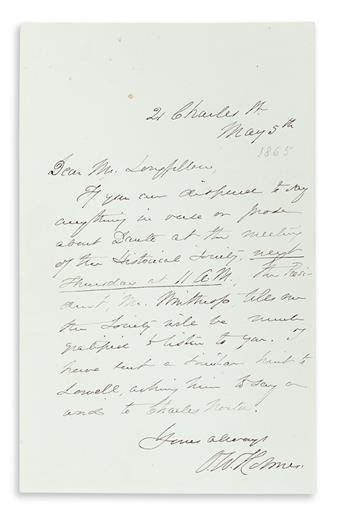 21 Charles St.
May 5th
1865
Dear Mr. Longfellow,
If you are disposed to say
anything in verse or prose
about Dante at the meeting
of the Historical Society, next
Thursday at 11 A.M., the Presi-
dent, Mr. Winthrop tells me
the Society will be much
gratified to listen to you. I
have sent a similar hint to
Lowell, asking him to say a
and to Charles Norton.
Yours always
O W Holmes.